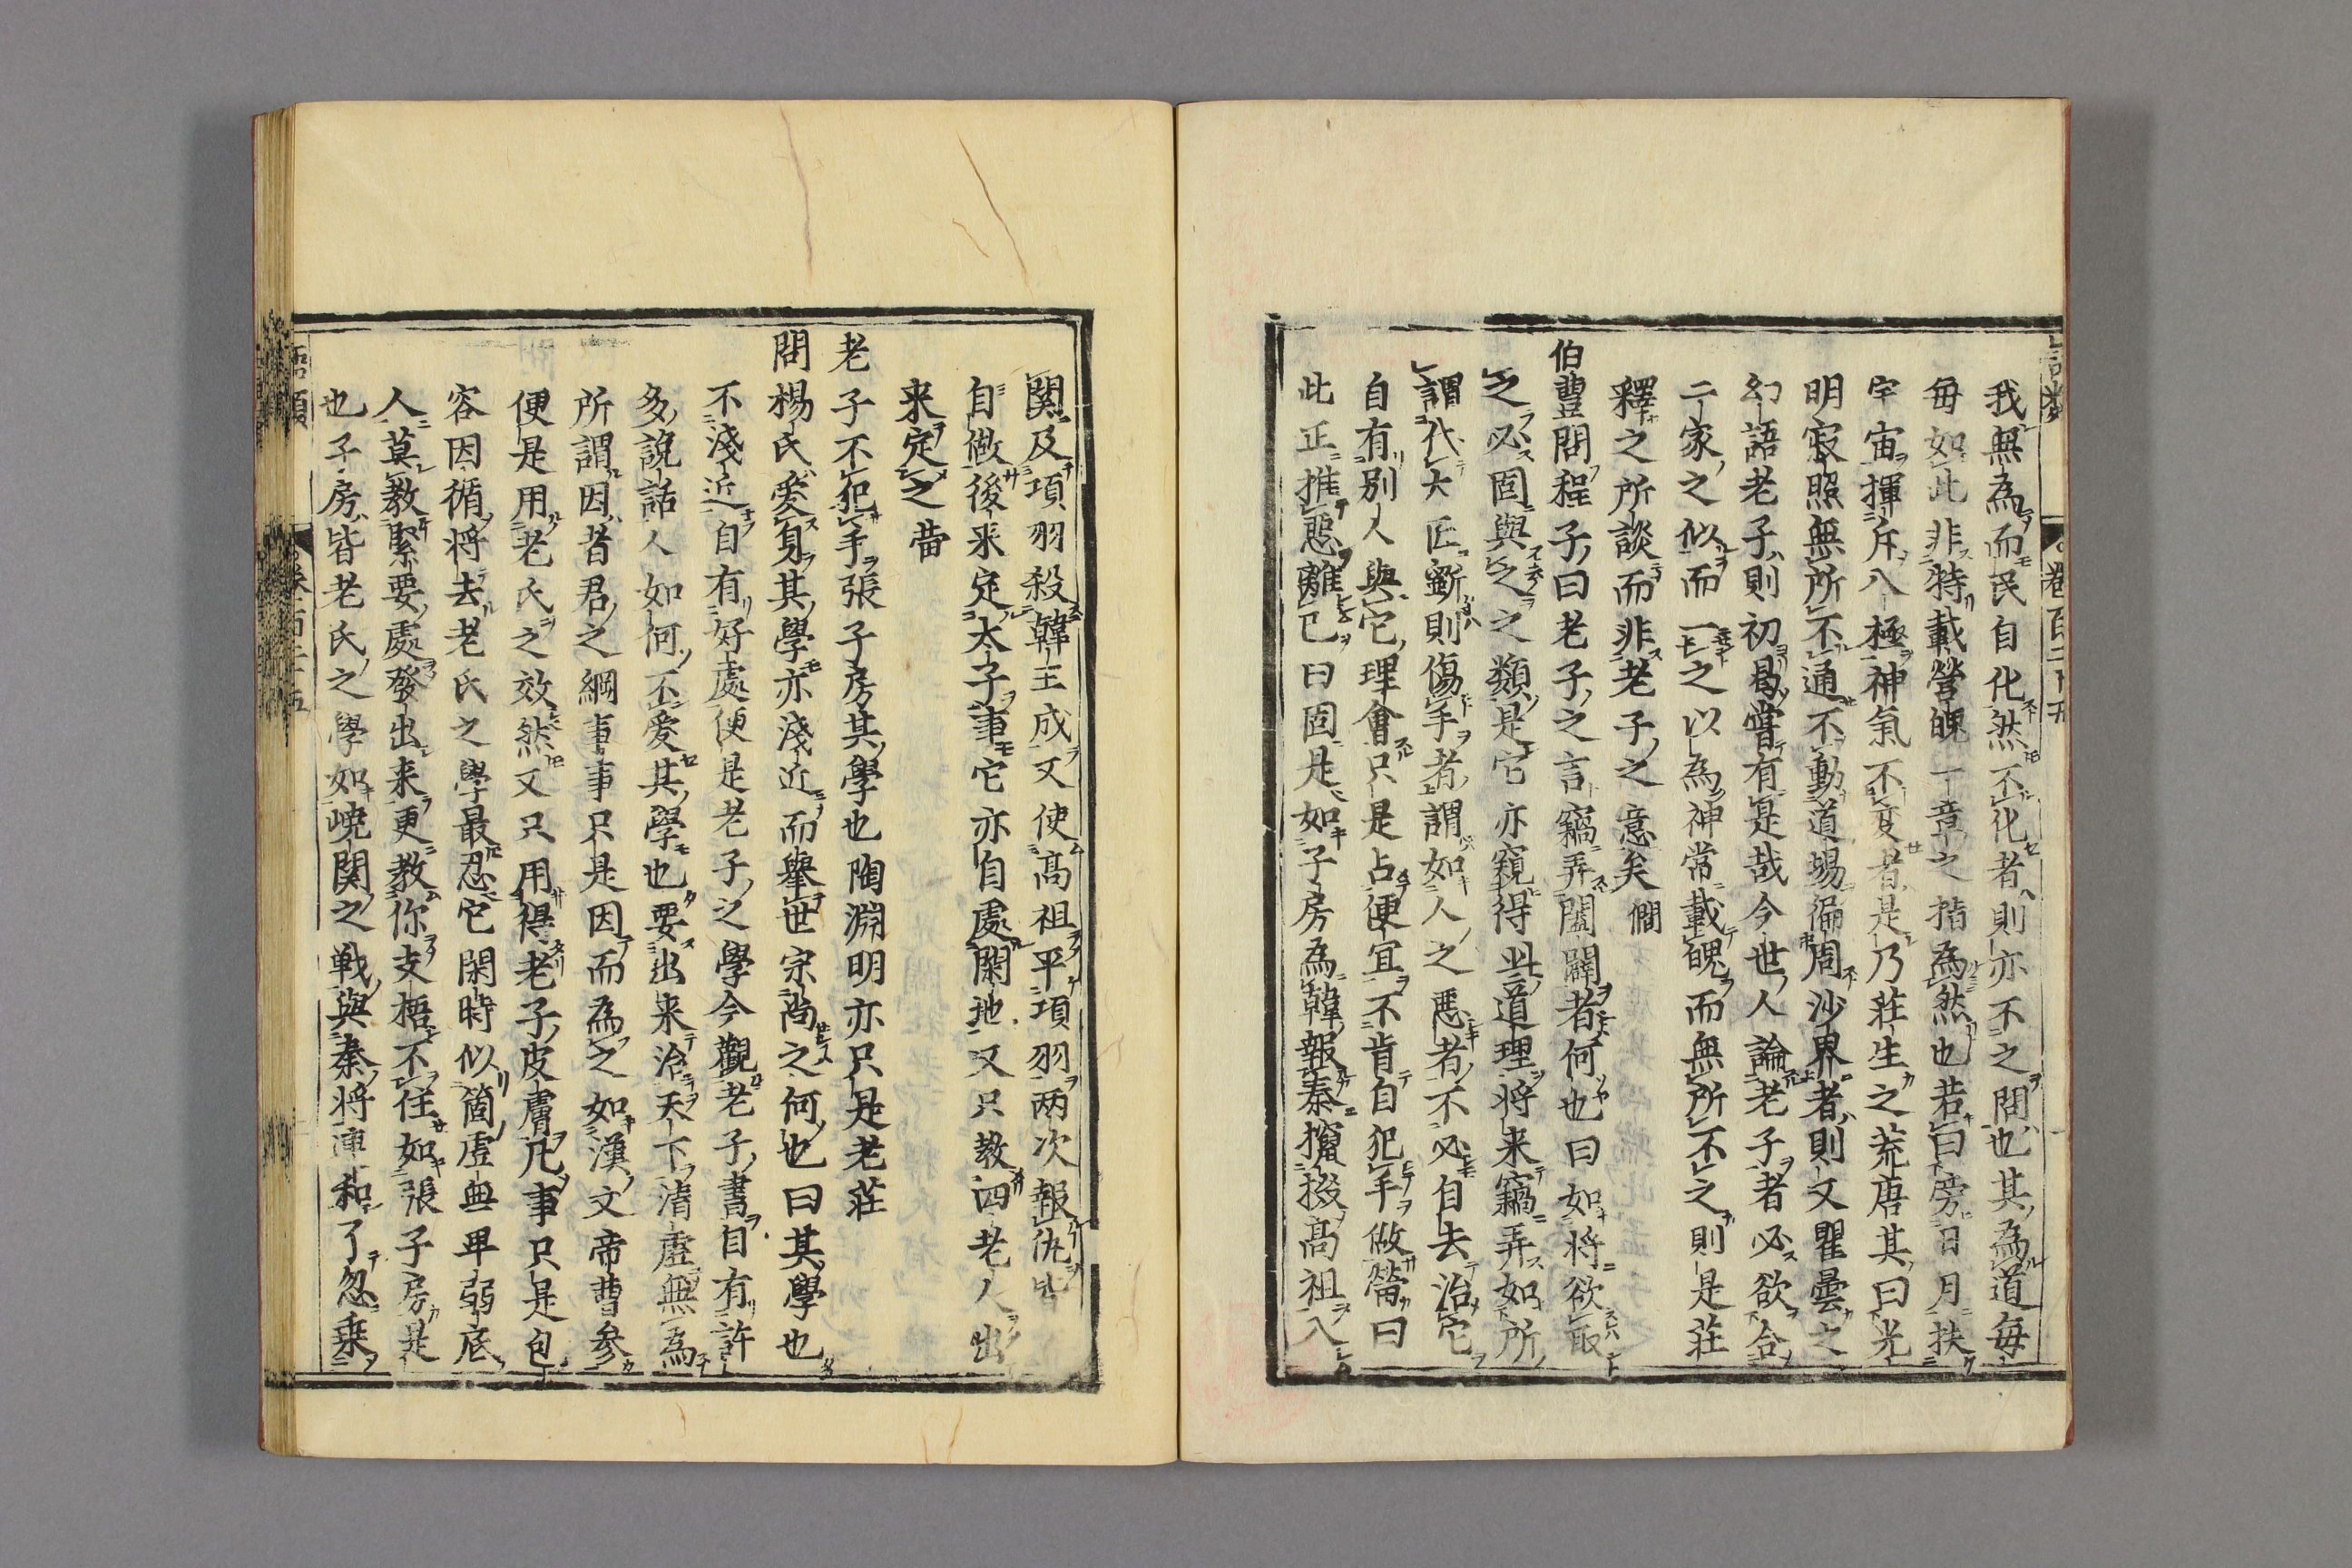 語類
卷百二十五
我無為而民自化然不化者則亦不之問也其為道每
每如此非特載營魄一章之指為然也若曰旁日月扶
宇宙揮斥八極神氣不変者是乃莊生之荒唐其曰光
明寂照無所不通不動道場徧周沙界者則又瞿曇之
幻語老子則初曷嘗有是哉今世人論老子者必欲合
二家之似而一之以為神常載魄而無所不之則是莊
釋之所談而非老子之意矣 僩
伯豊問程子曰老子之言竊弄闔闢者何也曰如将欲取
之必固與之之類是它亦窺得些道理将来竊弄如所
謂代大匠斲則傷手者謂如人之悪者不必自去治它
自有別人與它理會只是占便宜不肯自犯手做㽦曰
此正推悪離己曰固是如子房為韓報秦攛掇髙祖入
関及項羽殺韓王成又使髙祖平項羽两次報仇皆
自做後来定太子事它亦自處閑地又只教四老人出
来定之 㽦
老子不犯手張子房其學也陶淵明亦只是老莊
問楊氏愛身其學亦淺近而舉世宗尚之何也曰其學也
不淺近自有好處便是老子之學今觀老子書自有許
多說話人如何不愛其學也要出来治天下清虛無為
所謂因者君之綱事事只是因而為之如漢文帝曹參
便是用老氏之效然又只用得老子皮膚凡事只是包
容因循将去老氏之學最忍它閑時似箇虛無卑弱底
人莫教緊要處發出来更教你支梧不住如張子房是
也子房皆老氏之學如嶢関之戦與秦将連和了忽乗
語類
卷百二十五